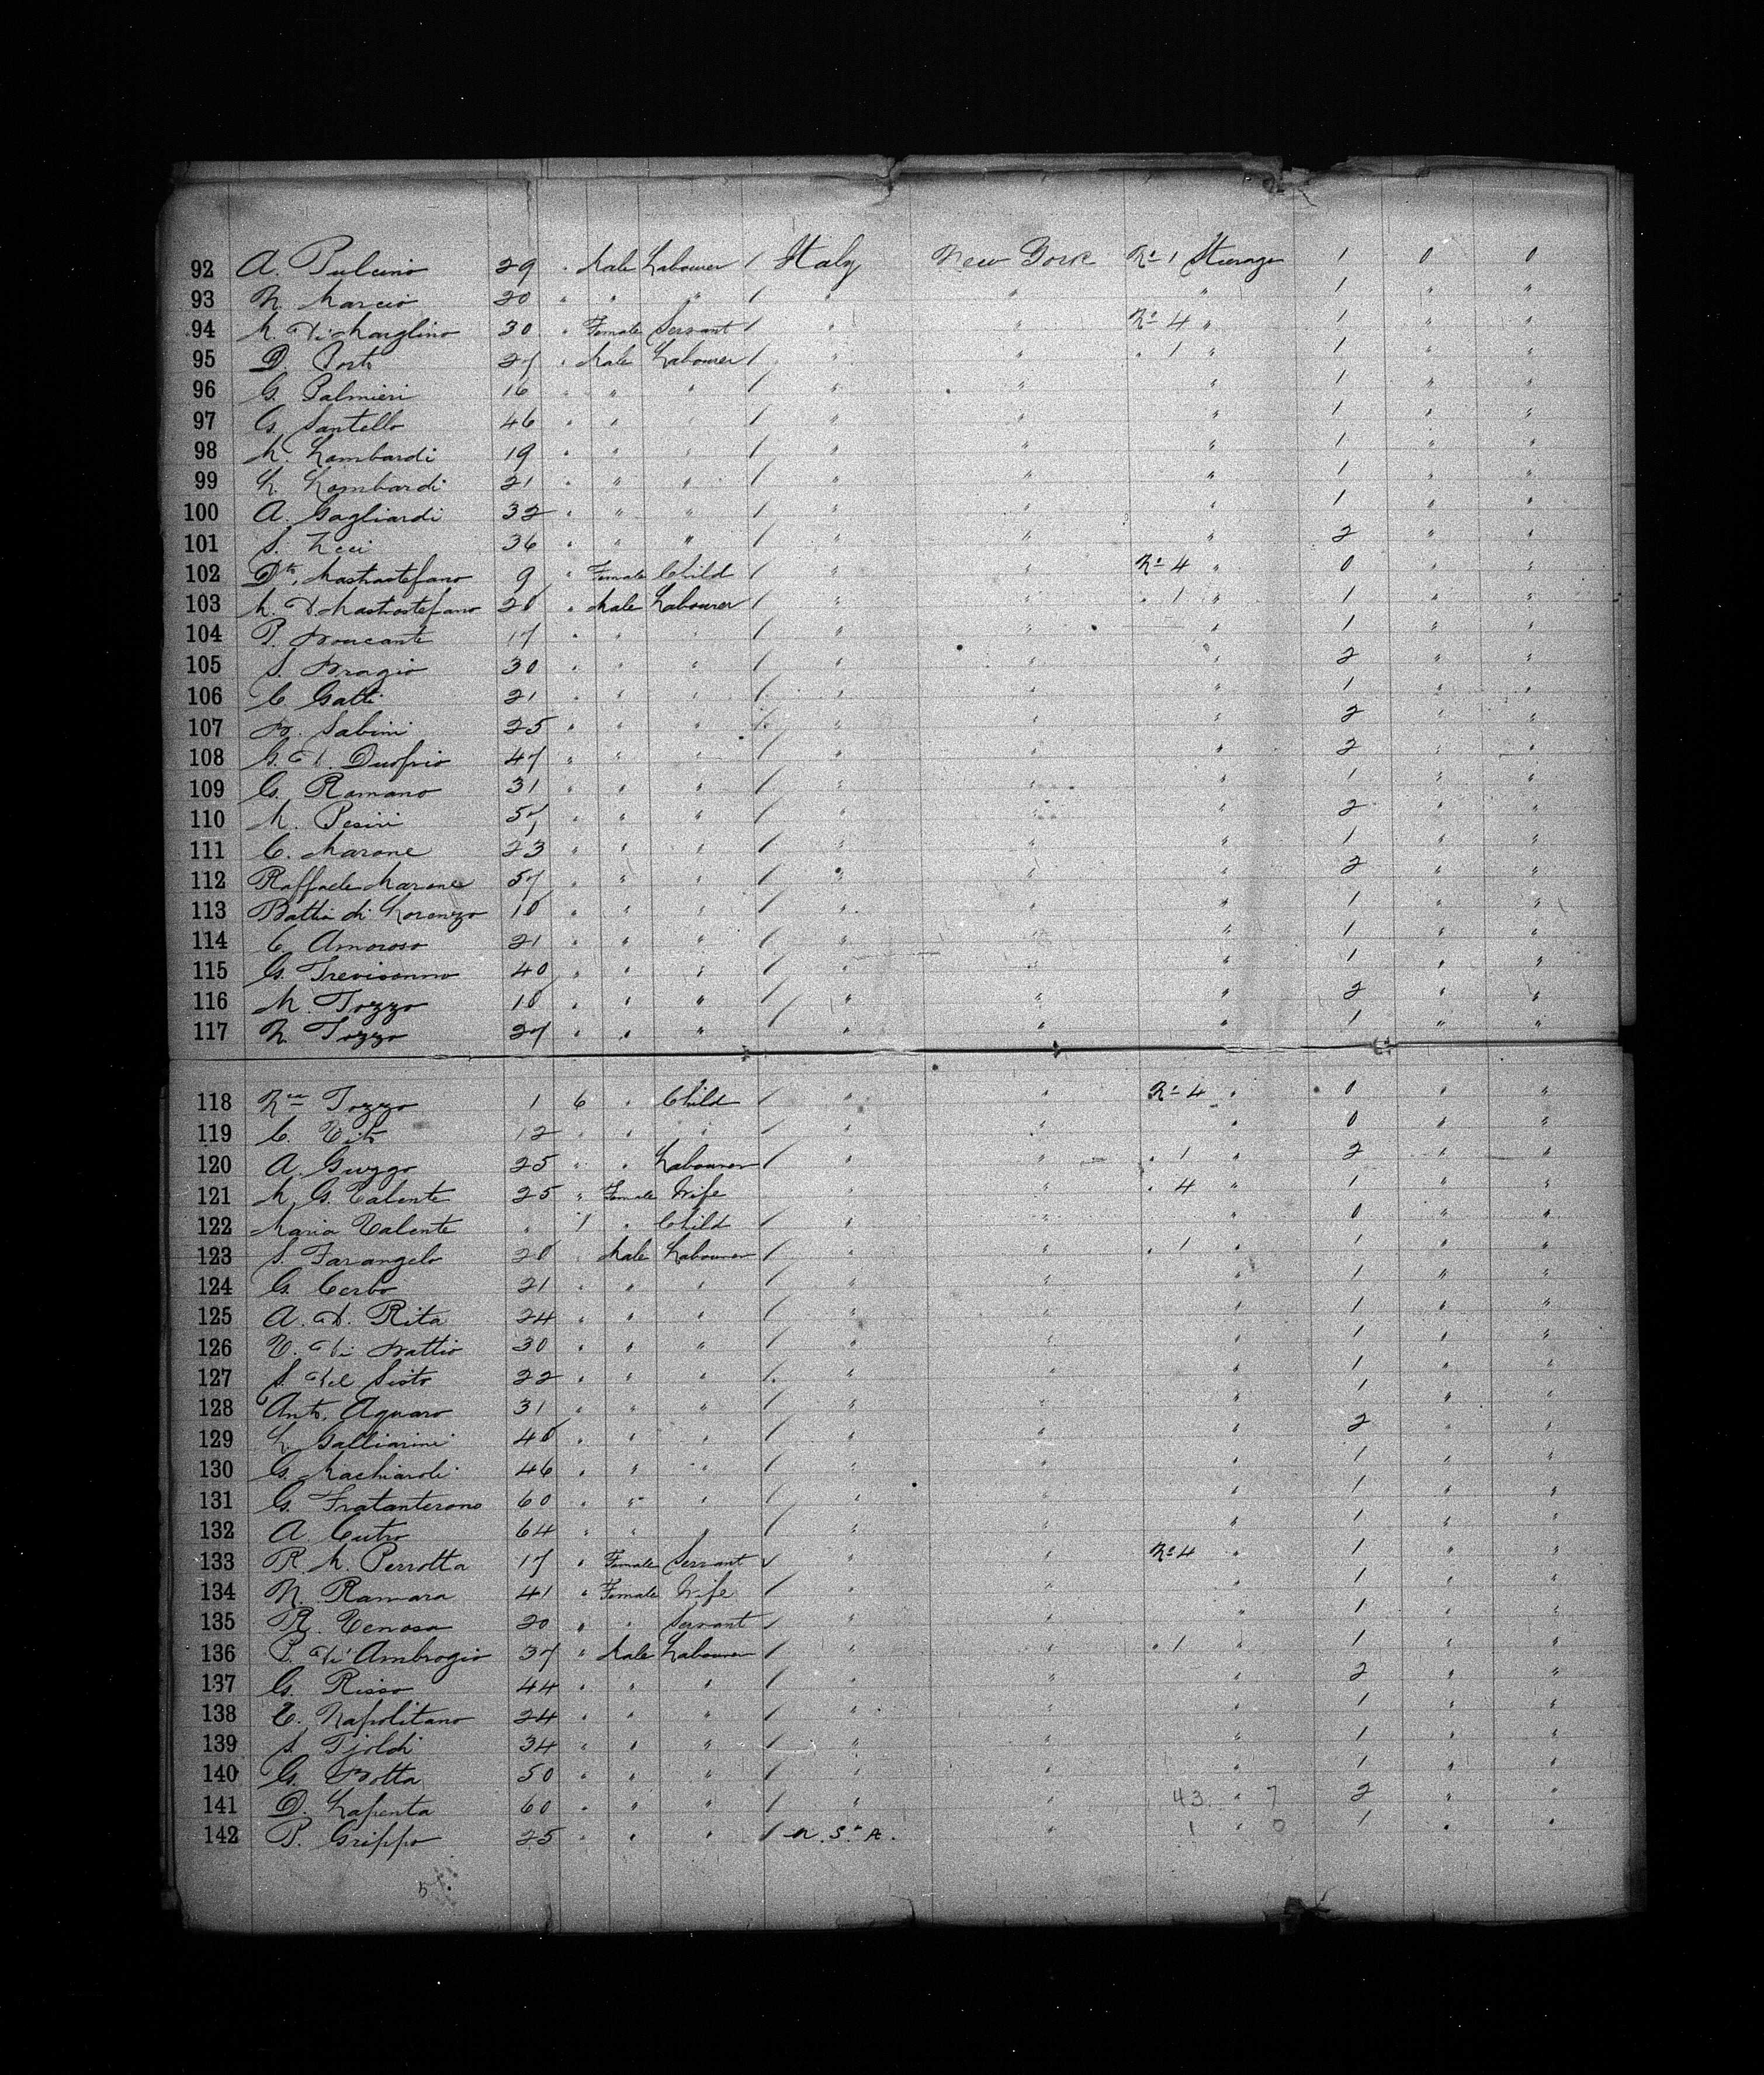 92 A. Pulcino 29 " Male Labourer / Italy New York No 1 Steerage 1 0 0
93 N. Marcio 20 " " " / " " " 1 " "
94 M. Di Marglino 30 " Female Servant / " " No 4 " 1 " "
95 D. Porto 27 " Male Labourer / " " " 1 " 1 " "
96 G. Palmieri 16 " " " / " " " 1 " "
97 G. Santello 46 " " " / " " " 1 " "
98 M. Lombardi 19 " " " / " " " 1 " "
99 L. Lombardi 21 " " " / " " " 1 " "
100 A. Gagliardi 32 " " " / " " " 1 " "
101 S. 36 " " " / " " " 2 " "
102 Mastrostefano 9 " Female Child / " " No 4 " 0 " "
103 M. D Mastrostefano 28 " Male Labourer / " " " 1 " 1 " "
104 P. 17 " " " / " " " 1 " "
105 S. Bragio 30 " " " / " " " 2 " "
106 C. Gatti 21 " " " / " " " 1 " "
107 B. Sabini 25 " " " / " " " 2 " "
108 G. D. 47 " " " / " " " 2 " "
109 G. Ramano 31 " " " / " " " 1 " "
110 M. Pesiri 57 " " " / " " " 2 " "
111 C. Marone 23 " " " / " " " 1 " "
112 Raffaele Marone 57 " " " / " " " 2 " "
113 Battia di Lorenzo 18 " " " / " " " 1 " "
114 C. Amoroso 21 " " " / " " " 1 " "
115 G. Trevisonno 40 " " " / " " " 1 " "
116 M. Tozzo 18 " " " / " " " 2 " "
117 N. Tozzo 27 " " " / " " " 1 " "
118 Tozzo 1 6 " Child / " " No 4 " 0 " "
119 C. Vito 12 " " " / " " " 0 " "
120 A. Guzzo 25 " " Labourer / " " " 1 " 2 " "
121 M. G. Valente 25 " Female Wife " " " 4 " 1 " "
122 Maria Valente " 1 " Child / " " " 0 " "
123 S. Farangelo 28 " Male Labourer / " " " 1 " 1 " "
124 G. Cerbo 21 " " " / " " " 1 " "
125 A. D. Rita 24 " " " / " " " 1 " "
126 V. Di Battio 30 " " " / " " " 1 " "
127 S. Del Sisto 22 " " " / " " " 1 " "
128 Anto. Aquaro 31 " " " / " " " 1 " "
129 L. Galliarini 48 " " " / " " " 2 " "
130 G. Machiaroli 46 " " " / " " " 1 " "
131 G. Fratanterono 60 " " " / " " " 1 " "
132 A. Cutro 64 " " " / " " " 1 " "
133 R. M. Perrotta 17 " Female Servant / " " No 4 " 1 " "
134 N. Ramara 41 " Female Wife / " " " 1 " "
135 R. Venosa 20 " " Servant / " " " 1 " "
136 P. Di Ambrogio 37 " Male Labourer / " " " 1 " 1 " "
137 G. Risso 44 " " " / " " " 2 " "
138 V. Napolitano 24 " " " / " " " 1 " "
139 S. 34 " " " / " " " 1 " "
140 G. Botta 50 " " " / " " " 1 " "
141 D. Lapenta 60 " " " / " " 43 " 7 2 " "
142 P. Grippo 25 " " " / U.S.A. " 1 " 0 1 " "